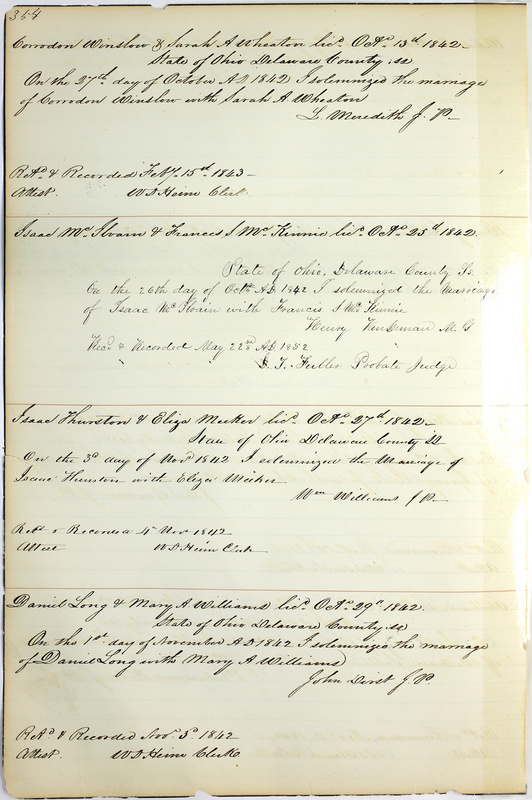 354
Corrodon Winslow & Sarah A Wheaton lic.d Oct.o 13th 1842
State of Ohio Delaware County ss
On the 27th day of October A.D 1842 I solemnized the marrage
of Corrodon Winslow with Sarah A Wheaton
L. Meredith J. P.
Ret.d & Recorded Feb.y 15th 1843
Attest. W D Heim Clerk
Isaac Mc Ilvain & Frances S Mc Kinnie lic.d Oct.o 25d 1842.
State of Ohio, Delaware County Ss.
On the 26th day of Octo A.D. 1842 I solemnized the marriage
of Isaac Mc Ilvain with Francis S Mc Kinnie
Henry VanDeman M. G
Rec.d & Recorded May 22nd A.D. 1852
Fuller Probate Judge
Isaac Thurston & Eliza Meeker lic.d Oct.o 27th 1842
State of Ohio Delaware County ss
On the 3d day of Nov.r 1842 I solemnized the Marriage of
Isaac Thurston with Eliza Meeker
Wm Williams J P.
Ret.d & Recorded 4 Nov 1842
Attest W D Heim Clerk
Daniel Long & Mary A Williams lic.d Oct.o 29th 1842.
State of Ohio Delaware County ss
On the 1st day of November A D 1842 I solemnized the marrage
of Daniel Long with Mary A Williams
John J. P.
Ret.d & Recorded Nov. 5d 1842
Attest. W D Heim Clerk